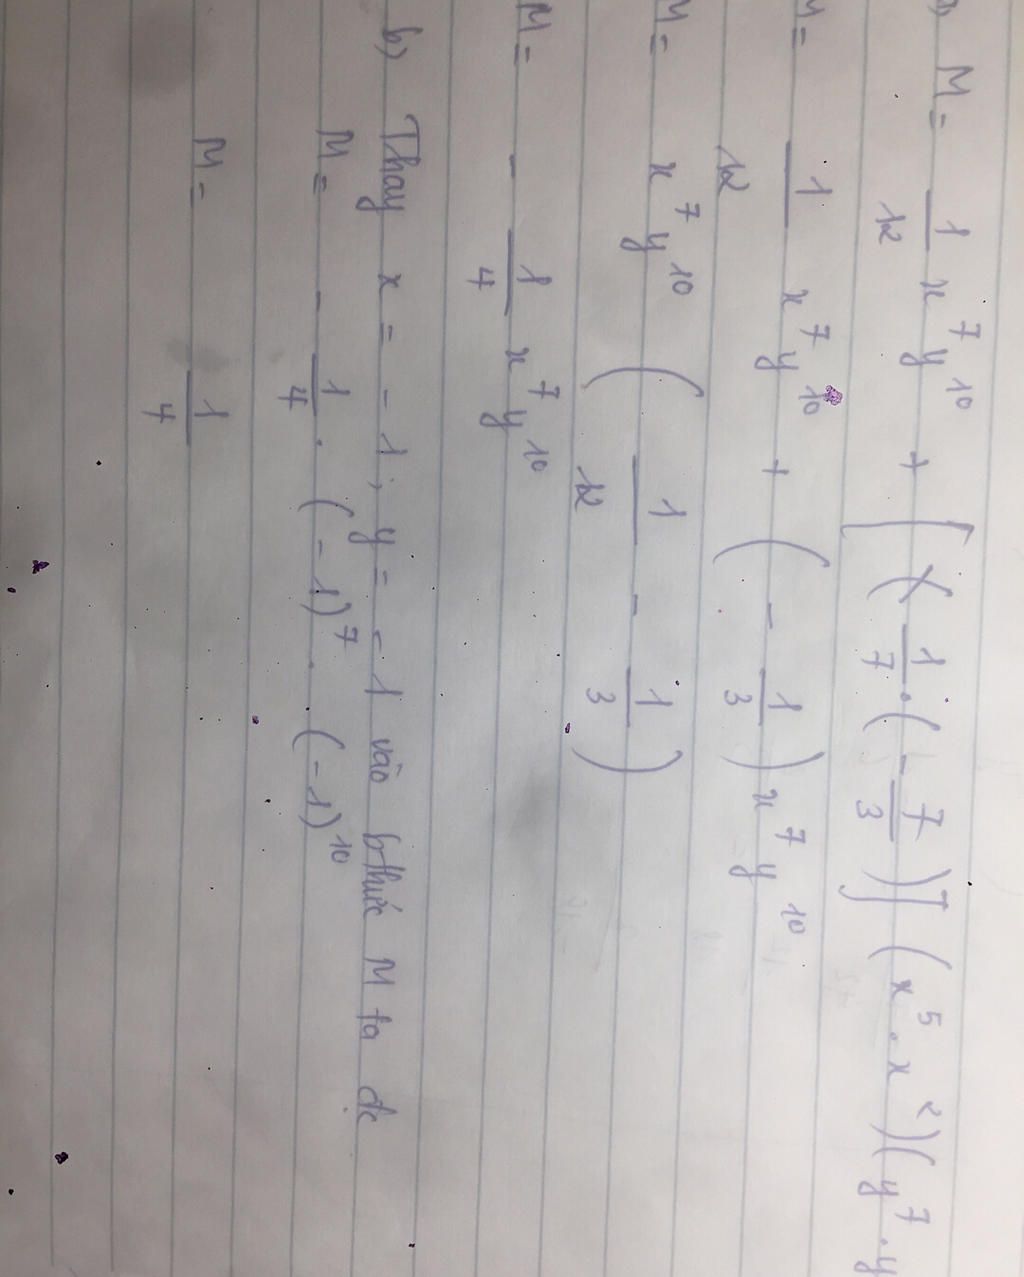 a) M = 1/12 x^7 y^10 + [(1/7 . (- 7/3)] (x^5 . x^2)(y^7 . y
M = 1/12 x^7 y^10 + (- 1/3) x^7 y^10
M = x^7 y^10 (1/12 - 1/3)
M = - 1/4 x^7 y^10
b) Thay x = - 1 ; y = - 1 vào bthức M ta đc
M = - 1/4 . (- 1)^7 . (- 1)^10
M = 1/4